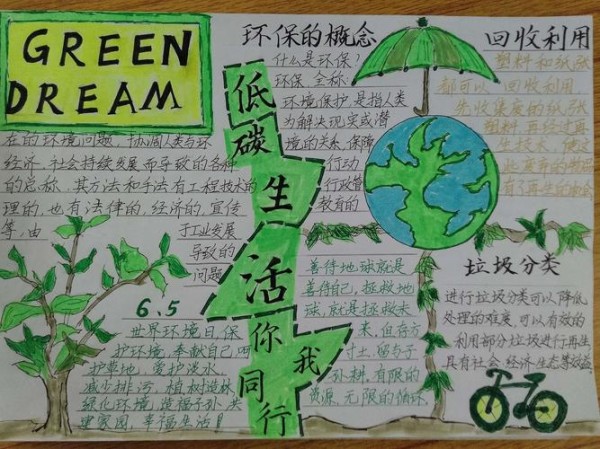 GREEN
DREAM
环保的概念
什么是环保?
环保,全称
环境保护,是指人类
为解决现实或潜
在的环境问题,协调人类与环
境的关系,保障
经济、社会持续发展而导致的各种
行动
的总称。其方法和手法有工程技术的
行政管
理的,也有法律的、经济的、宣传
教育的
等,由
于工业发展
导致的
问题
回收利用
塑料和纸张
都可以 回收利用
先收集废的纸张
塑料
低碳生活你我同行
6.5
世界环境日,保
护环境,奉献自己,呵
护草地,爱护淡水,
减少排污,植树造林
绿化环境,造福子孙,共
建家园,幸福生活!
善待地球就是
善待自己,拯救地
球,就是拯救未
来,但存方
寸土,留与子
孙耕,有限的
资源,无限的循环.
垃圾分类
进行垃圾分类可以降低
处理的难度,可以有效的
利用部分垃圾进行再生
具有社会、经济生态等效益